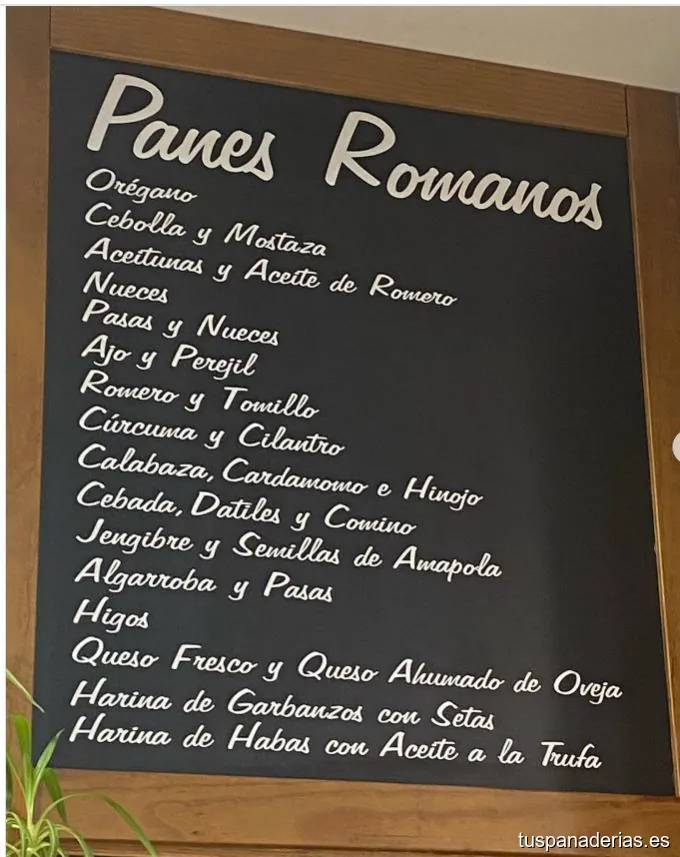 Panes Romanos
Orégano
Cebolla y Mostaza
Aceitunas y Aceite de Romero
Nueces
Pasas y Nueces
Ajo y Perejil
Romero y Tomillo
Cúrcuma y Cilantro
Calabaza, Cardamomo e Hinojo
Cebada, Datiles y Comino
Jengibre y Semillas de Amapola
Algarroba y Pasas
Higos
Queso Fresco y Queso Ahumado de Oveja
Harina de Garbanzos con Setas
Harina de Habas con Aceite a la Trufa
tuspanaderias.es